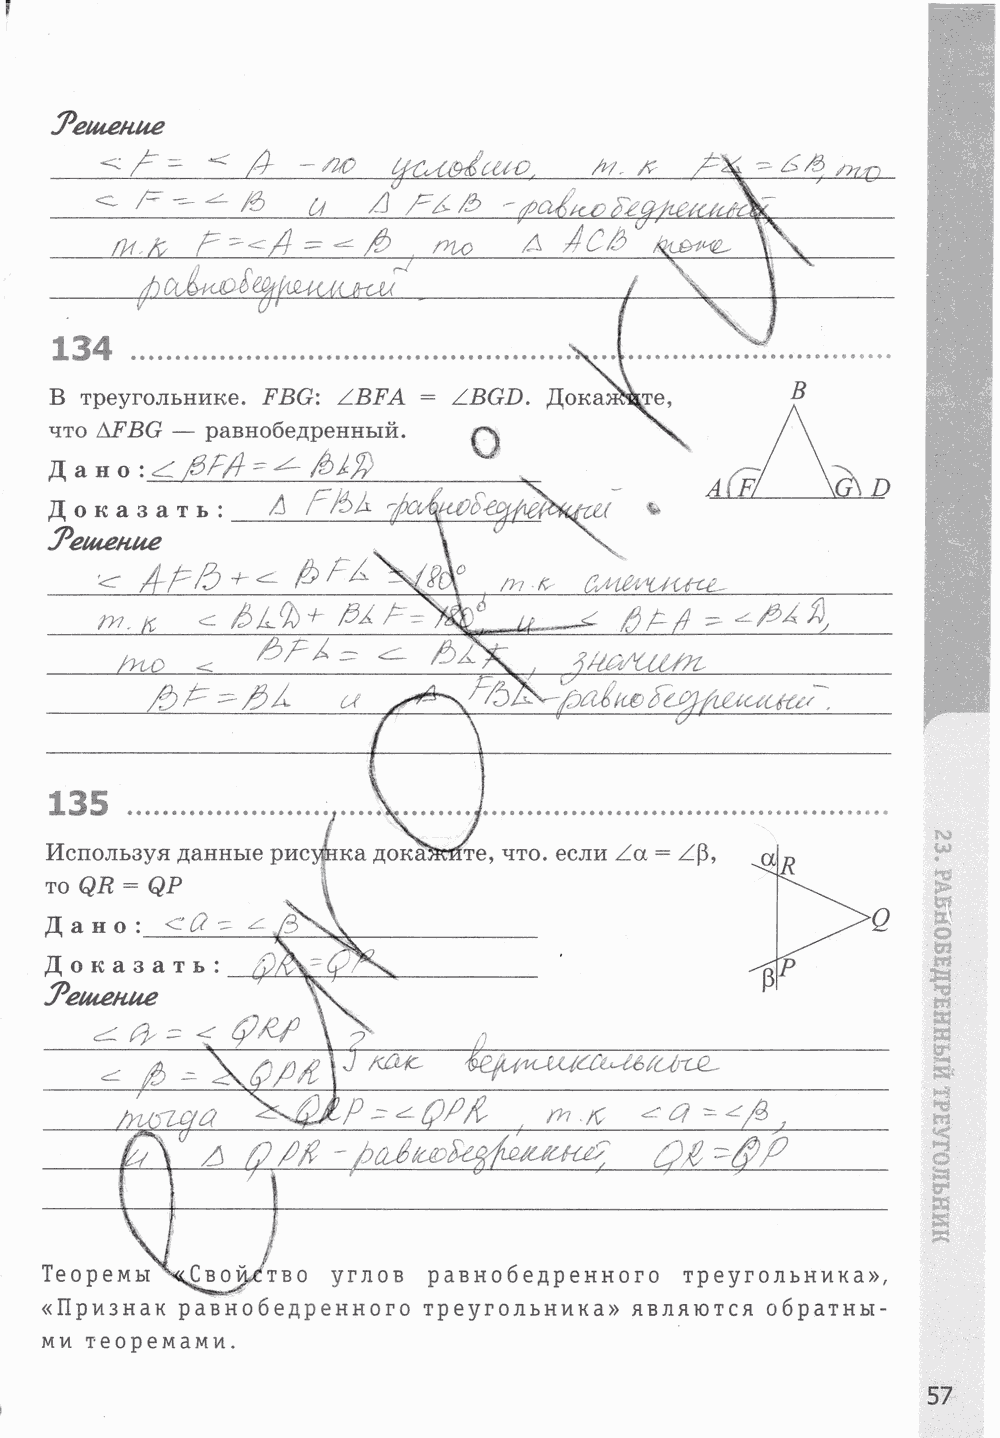 Решение
< F = < A - по условию, т.к FG = GB, то
< F = < B и Δ FGB - равнобедренный
т.к F = <A = < B, то Δ ACB тоже
равнобедренный.
134
В треугольнике. FBG: ∠BFA = ∠BGD. Докажите,
что ΔFBG — равнобедренный.
Дано: < BFA = < BGD
Доказать: Δ FBG - равнобедренный
B
A F G D
Решение
< AFB + < BFG = 180°, т.к смежные
т.к < BGD + BGF = 180°, и < BFA = <BGD,
то < BFG = < BGF, значит
BF = BG и Δ FBG - равнобедренный.
135
Используя данные рисунка докажите, что. если ∠α = ∠β,
то QR = QP
Дано: <a = < β
Доказать: QR = QP
α R
Q
β P
Решение
< a = < QRP
< β = < QPR } как вертикальные
тогда < QRP = <QPR, т.к <a = <β,
и Δ QPR - равнобедренный, QR = QP
Теоремы «Свойство углов равнобедренного треугольника»,
«Признак равнобедренного треугольника» являются обратны-
ми теоремами.
23. РАВНОБЕДРЕННЫЙ ТРЕУГОЛЬНИК
57